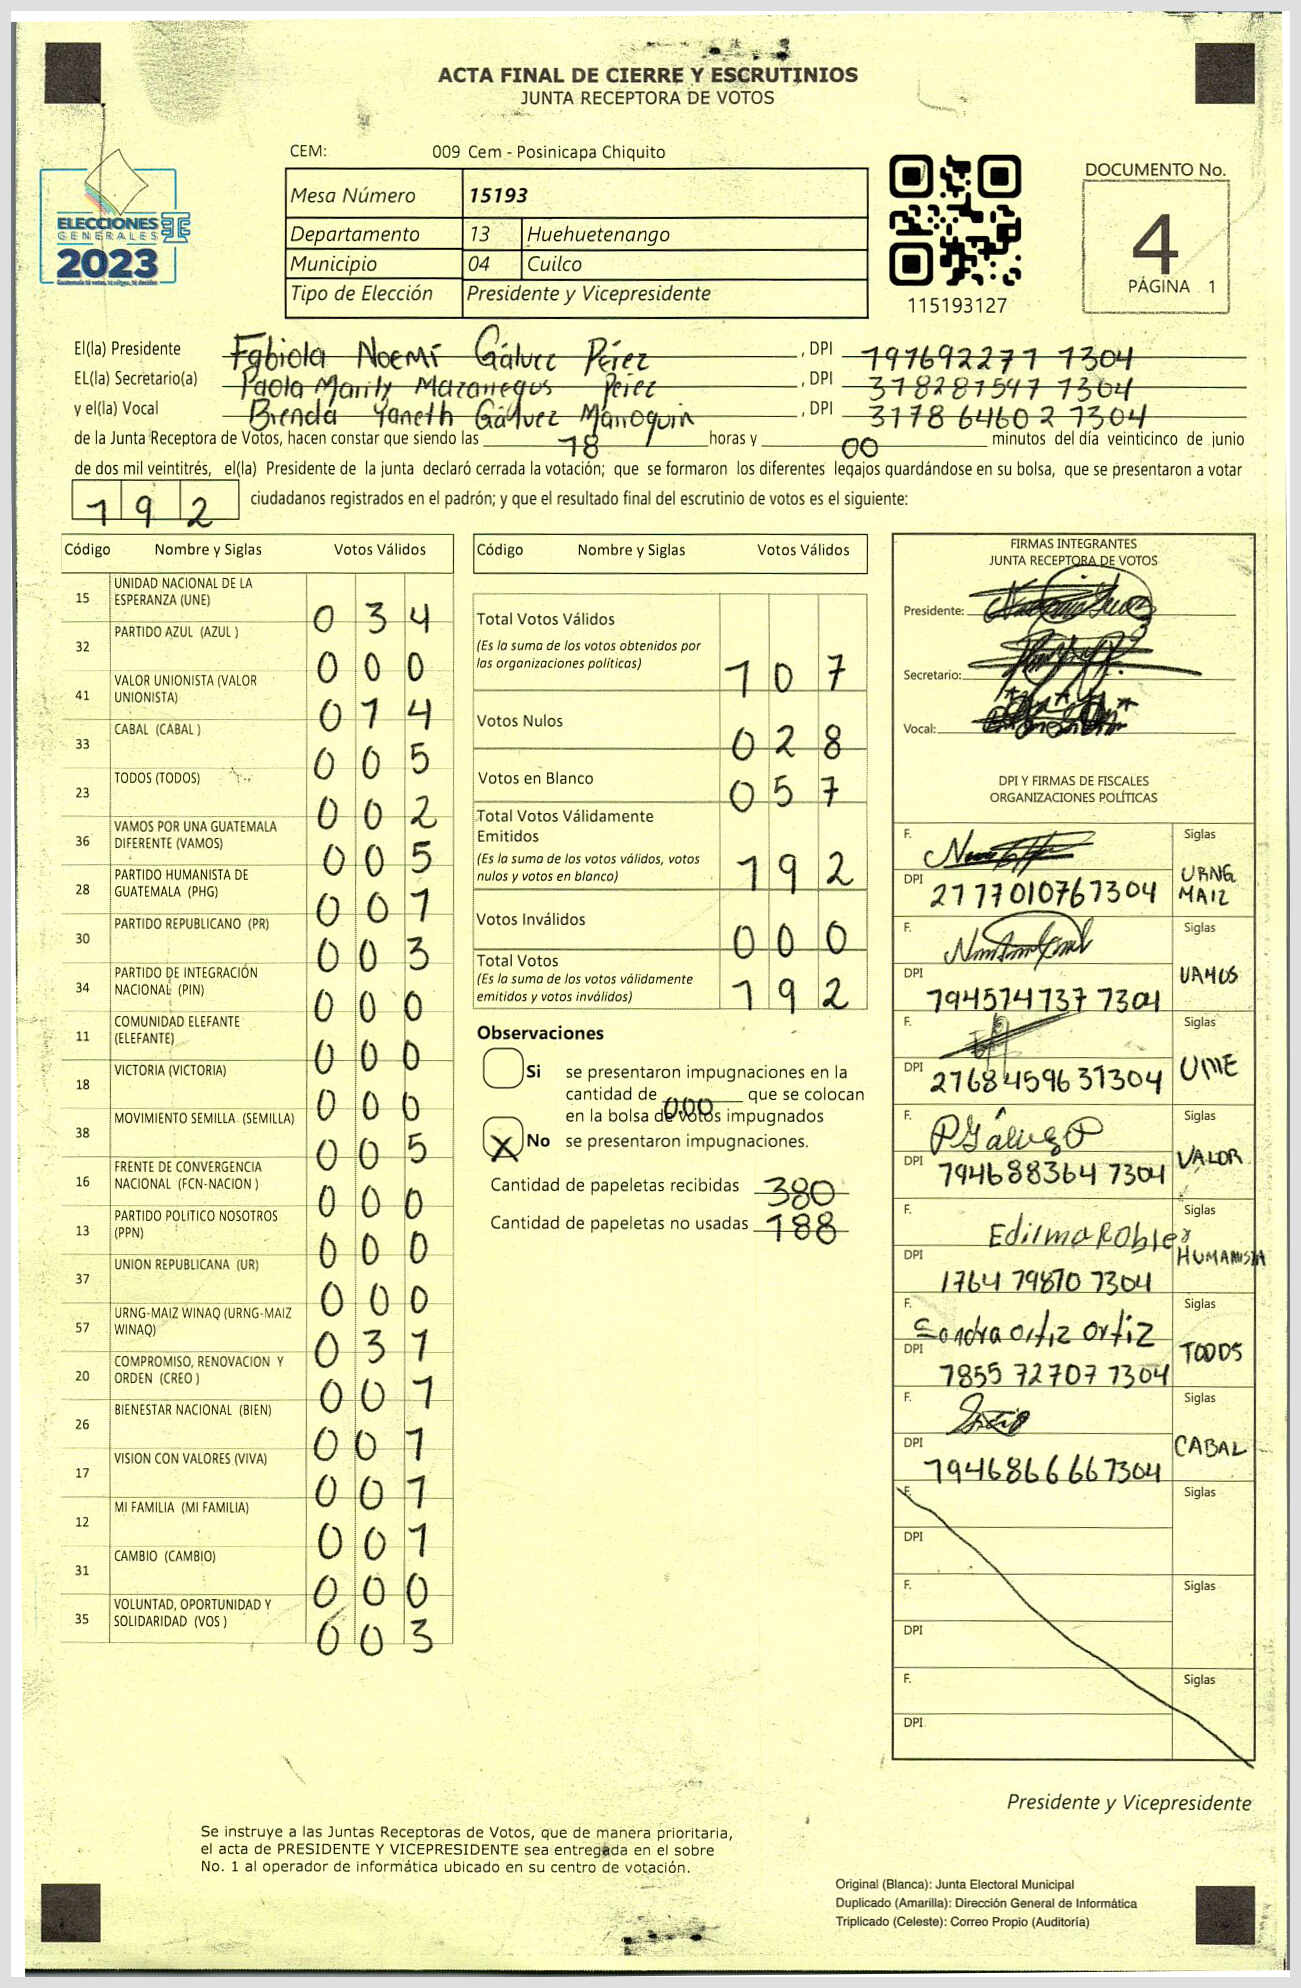 ACTA FINAL DE CIERRE Y ESCRUTINIOS
JUNTA RECEPTORA DE VOTOS
CEM: 009 Cem - Posinicapa Chiquito
ELECCIONES
GENERALES
2023
Mesa Número 15193
Departamento 13 Huehuetenango
Municipio 04 Cuilco
Tipo de Elección Presidente y Vicepresidente
115193127
DOCUMENTO No.
4
PÁGINA 1
El(la) Presidente Fabiola Noemí Gálvez Pérez, DPI 197692277 1304
EL(la) Secretario(a) Paola Marily Mazariegos Pérez, DPI 318281547 1304
y el(la) Vocal Brenda Yaneth Gálvez Marroquin, DPI 3178 64602 1304
de la Junta Receptora de Votos, hacen constar que siendo las 18 horas y 00 minutos del día veinticinco de junio
de dos mil veintitrés, el(la) Presidente de la junta declaró cerrada la votación; que se formaron los diferentes legajos guardándose en su bolsa, que se presentaron a votar
192 ciudadanos registrados en el padrón; y que el resultado final del escrutinio de votos es el siguiente:
Código Nombre y Siglas Votos Válidos
15 UNIDAD NACIONAL DE LA ESPERANZA (UNE) 034
32 PARTIDO AZUL (AZUL ) 000
41 VALOR UNIONISTA (VALOR UNIONISTA) 014
33 CABAL (CABAL ) 005
23 TODOS (TODOS) 002
36 VAMOS POR UNA GUATEMALA DIFERENTE (VAMOS) 005
28 PARTIDO HUMANISTA DE GUATEMALA (PHG) 001
30 PARTIDO REPUBLICANO (PR) 003
34 PARTIDO DE INTEGRACIÓN NACIONAL (PIN) 000
11 COMUNIDAD ELEFANTE (ELEFANTE) 000
18 VICTORIA (VICTORIA) 000
38 MOVIMIENTO SEMILLA (SEMILLA) 005
16 FRENTE DE CONVERGENCIA NACIONAL (FCN-NACION ) 000
13 PARTIDO POLITICO NOSOTROS (PPN) 000
37 UNION REPUBLICANA (UR) 000
57 URNG-MAIZ WINAQ (URNG-MAIZ WINAQ) 031
20 COMPROMISO, RENOVACION Y ORDEN (CREO ) 001
26 BIENESTAR NACIONAL (BIEN) 001
17 VISION CON VALORES (VIVA) 001
12 MI FAMILIA (MI FAMILIA) 001
31 CAMBIO (CAMBIO) 000
35 VOLUNTAD, OPORTUNIDAD Y SOLIDARIDAD (VOS ) 003
Código Nombre y Siglas Votos Válidos
Total Votos Válidos 107
(Es la suma de los votos obtenidos por
las organizaciones políticas)
Votos Nulos 028
Votos en Blanco 057
Total Votos Válidamente
Emitidos 192
(Es la suma de los votos válidos, votos
nulos y votos en blanco)
Votos Inválidos 000
Total Votos 192
(Es la suma de los votos válidamente
emitidos y votos inválidos)
Observaciones
Si se presentaron impugnaciones en la
cantidad de 000 que se colocan
en la bolsa de votos impugnados
X No se presentaron impugnaciones.
Cantidad de papeletas recibidas 380
Cantidad de papeletas no usadas 188
FIRMAS INTEGRANTES
JUNTA RECEPTORA DE VOTOS
Presidente:
Secretario:
Vocal:
DPI Y FIRMAS DE FISCALES
ORGANIZACIONES POLÍTICAS
F. Siglas
DPI 2177010761304 URNG MAIZ
F. Siglas
DPI 194574737 1304 VAMOS
F. Siglas
DPI 2768459631304 UNE
F. PGálvezP Siglas
DPI 194688364 1304 VALOR
F. Edilma Robles Siglas
DPI 1764 79870 1304 HUMANISTA
F. Sandra Ortiz Ortiz Siglas
DPI 1855 72707 1304 TODOS
F. Siglas
DPI 1946866661304 CABAL
F. Siglas
DPI
F. Siglas
DPI
F. Siglas
DPI
Presidente y Vicepresidente
Se instruye a las Juntas Receptoras de Votos, que de manera prioritaria,
el acta de PRESIDENTE Y VICEPRESIDENTE sea entregada en el sobre
No. 1 al operador de informática ubicado en su centro de votación.
Original (Blanca): Junta Electoral Municipal
Duplicado (Amarilla): Dirección General de Informática
Triplicado (Celeste): Correo Propio (Auditoría)